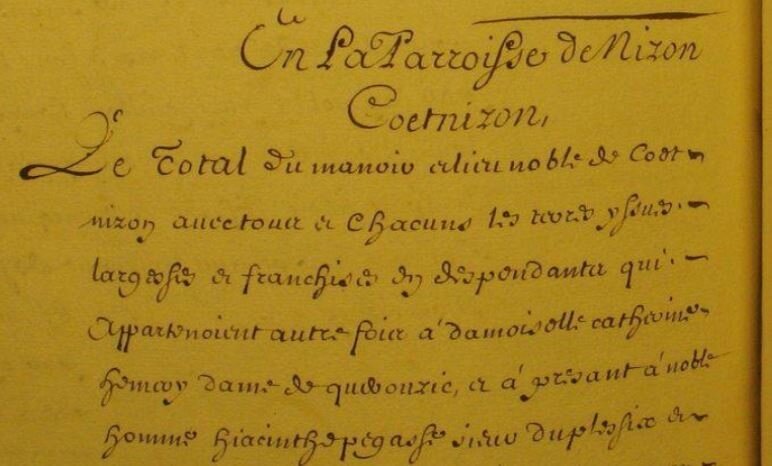 En La Parroisse de Nizon
Coetnizon,
Le Total du manoir et lieu noble de Coet-
nizon avec tous et Chacuns les terres yssues
largesses et franchises en despendantes qui
Appartenoient autre fois à damoiselle catherine
hemery dame de , et à presant à noble
homme hiacinthe pegasse sieur duplessix et